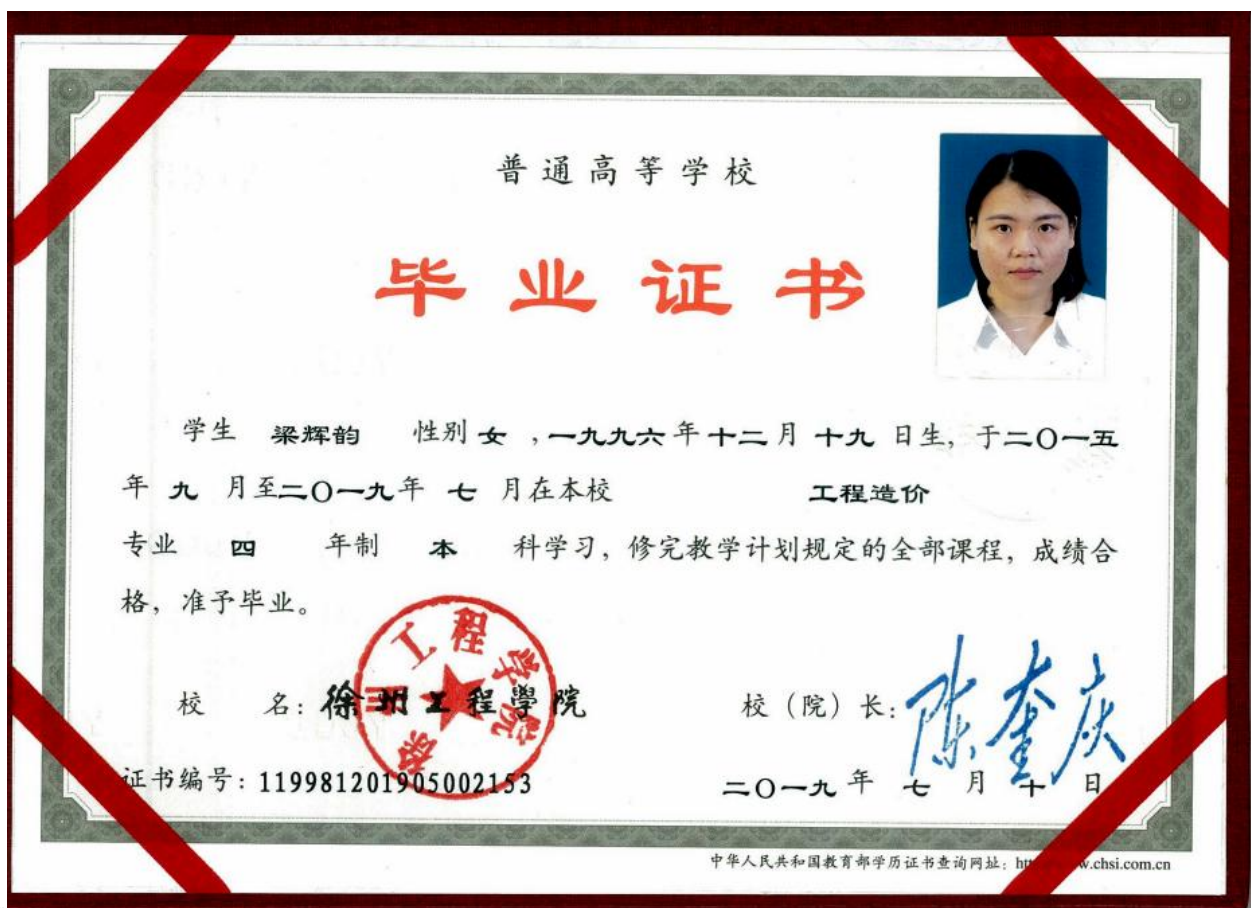 普通高等学校
毕业证书
学生 梁辉韵 性别 女 ，一九九六年十二月 十九 日生，于二〇一五
年 九 月至二〇一九年 七 月在本校 工程造价
专业 四 年制 本 科学习，修完教学计划规定的全部课程，成绩合
格，准予毕业。
徐州工程学院
校 名：徐州工程學院 校（院）长：陈奎庆
证书编号：119981201905002153 二〇一九年 七 月 十 日
中华人民共和国教育部学历证书查询网址：ht w.chsi.com.cn